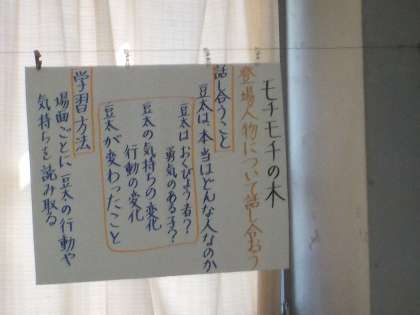 モチモチの木
登場人物について話し合おう
話し合うこと
豆太は本当はどんな人なのか
豆太はおくびょう者?
勇気のある子?
豆太の気持ちの変化
行動の変化
豆太が変わったこと
学習方法
場面ごとに豆太の行動や
気持ちを読み取る